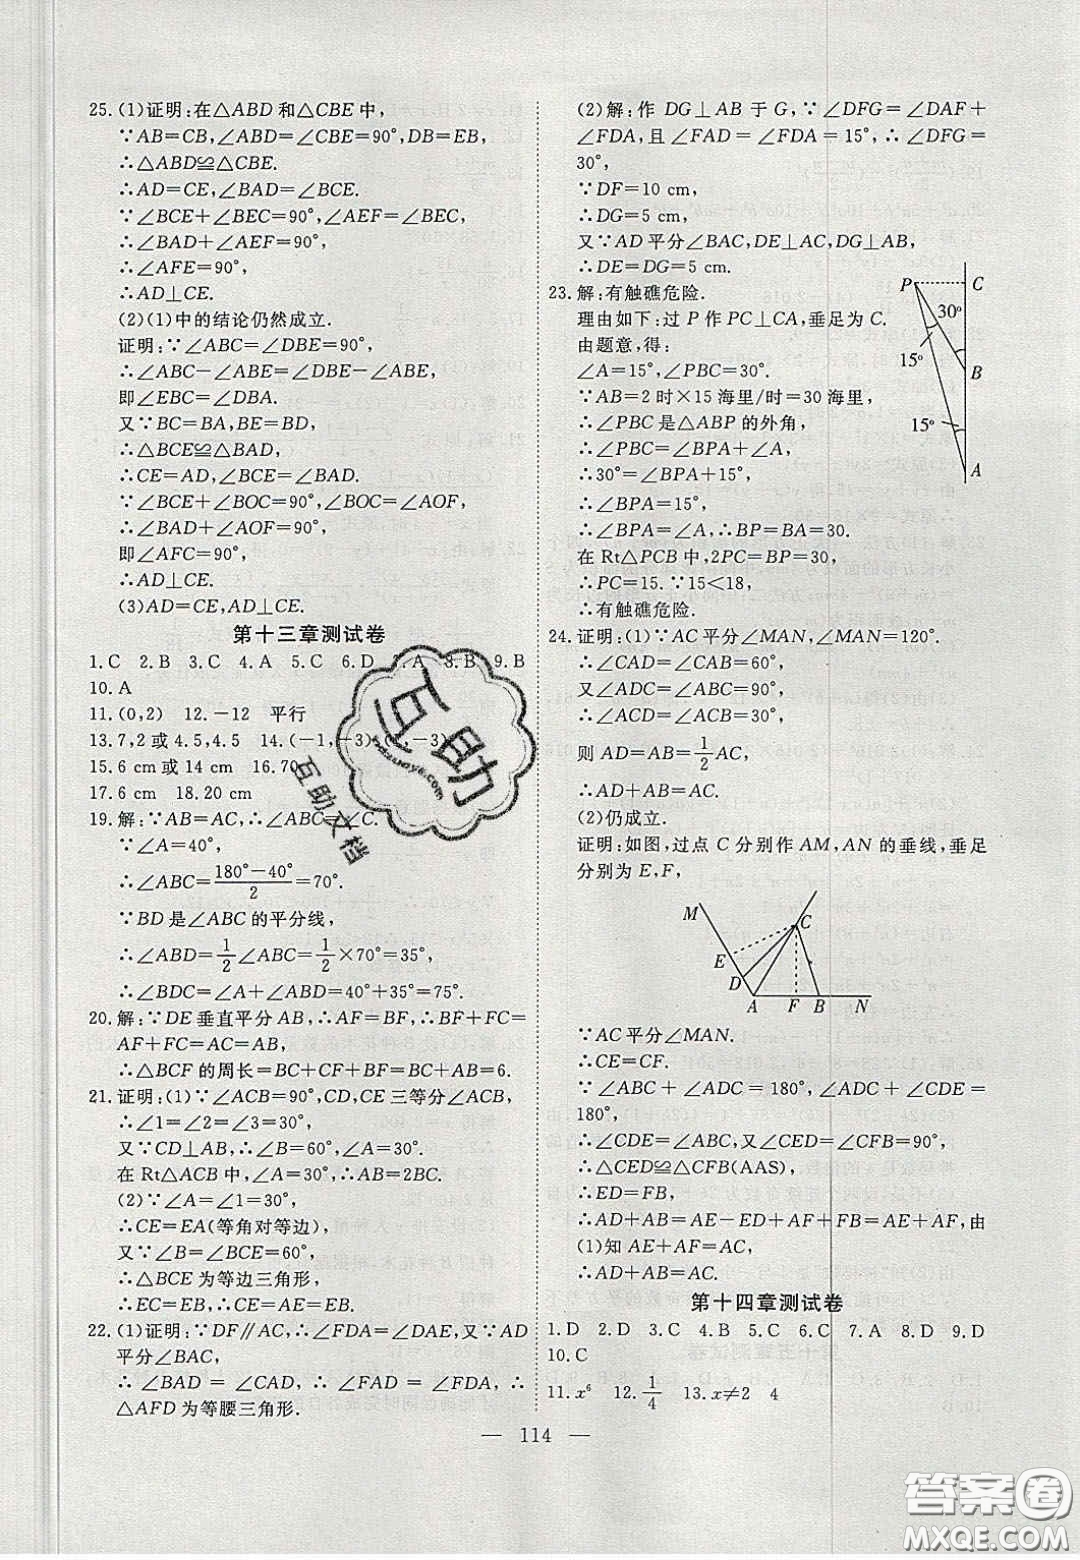 25.(1)证明:在△ABD和△CBE中,
∵AB=CB,∠ABD=∠CBE=90°,DB=EB,
∴△ABD≌△CBE.
∴AD=CE,∠BAD=∠BCE.
∵∠BCE+∠BEC=90°,∠AEF=∠BEC,
∴∠BAD+∠AEF=90°.
∴∠AFE=90°,
∴AD⊥CE.
(2)(1)中的结论仍然成立.
证明:∵∠ABC=∠DBE=90°,
∴∠ABC-∠ABE=∠DBE-∠ABE,
即∠EBC=∠DBA.
又∵BC=BA,BE=BD,
∴△BCE≌△BAD.
∴CE=AD,∠BCE=∠BAD.
∵∠BCE+∠BOC=90°,∠BOC=∠AOF,
∴∠BAD+∠AOF=90°.
即∠AFC=90°,
∴AD⊥CE.
(3)AD=CE,AD⊥CE.
第十三章测试卷
1.C 2.B 3.C 4.A 5.C 6.D 7.A 8.B 9.B
10.A
11.(0,2) 12.-12 平行
13.7,2或4.5,4.5 14.(-1,-3) ,-3)
15.6 cm或14 cm 16.70
17.6 cm 18.20 cm
19.解:∵AB=AC,∴∠ABC=∠C.
∵∠A=40°,
∴∠ABC=\frac{180°-40°}{2}=70°.
∵BD是∠ABC的平分线,
∴∠ABD=\frac{1}{2}∠ABC=\frac{1}{2}×70°=35°,
∴∠BDC=∠A+∠ABD=40°+35°=75°.
20.解:∵DE垂直平分AB,∴AF=BF,∴BF+FC=
AF+FC=AC=AB,
∴△BCF的周长=BC+CF+BF=BC+AB=6.
21.证明:(1)∵∠ACB=90°,CD,CE三等分∠ACB,
∴∠1=∠2=∠3=30°,
又∵CD⊥AB,∴∠B=60°,∠A=30°.
在Rt△ACB中,∠A=30°,∴AB=2BC.
(2)∵∠A=∠1=30°,
∴CE=EA(等角对等边),
又∵∠B=∠BCE=60°,
∴△BCE为等边三角形,
∴EC=EB,∴CE=AE=EB.
22.(1)证明:∵DF∥AC,∴∠FDA=∠DAE,又∵AD
平分∠BAC,
∴∠BAD=∠CAD,∴∠FAD=∠FDA,∴
△AFD为等腰三角形.
(2)解:作DG⊥AB于G,∵∠DFG=∠DAF+
∠FDA,且∠FAD=∠FDA=15°,∴∠DFG=
30°,
∵DF=10 cm,
∴DG=5 cm,
又∵AD平分∠BAC,DE⊥AC,DG⊥AB,
∴DE=DG=5 cm.
23.解:有触礁危险.
理由如下:过P作PC⊥CA,垂足为C.
由题意,得:
∠A=15°,∠PBC=30°.
∵AB=2时×15海里/时=30海里,
∴∠PBC是△ABP的外角,
∴∠PBC=∠BPA+∠A,
∴30°=∠BPA+15°,
∴∠BPA=15°,
∴∠BPA=∠A,∴BP=BA=30.
在Rt△PCB中,2PC=BP=30,
∴PC=15.∵15<18,
∴有触礁危险.
P C
30°
15°
B
15°
A
24.证明:(1)∵AC平分∠MAN,∠MAN=120°.
∴∠CAD=∠CAB=60°,
又∠ADC=∠ABC=90°,
∴∠ACD=∠ACB=30°,
则AD=AB=\frac{1}{2}AC,
∴AD+AB=AC.
(2)仍成立.
证明:如图,过点C分别作AM,AN的垂线,垂足
分别为E,F,
M C
E
D
A F B N
∵AC平分∠MAN.
∴CE=CF.
∵∠ABC+∠ADC=180°,∠ADC+∠CDE=
180°,
∴∠CDE=∠ABC,又∠CED=∠CFB=90°,
∴△CED≌△CFB(AAS),
∴ED=FB,
∴AD+AB=AE-ED+AF+FB=AE+AF,由
(1)知AE+AF=AC,
∴AD+AB=AC.
第十四章测试卷
1.D 2.D 3.C 4.B 5.C 6.C 7.A 8.D 9.D
10.C
11.x⁶ 12.\frac{1}{4} 13.x≠2 4
— 114 —
互助
互助文档
答案圈
MXQE.COM